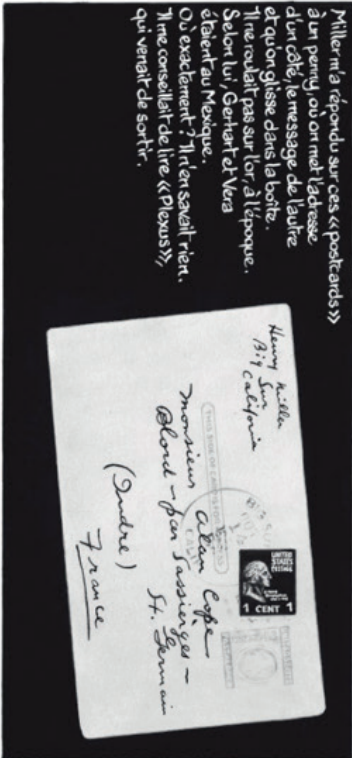 Miller m'a répondu sur ces «postcards»
à un penny, où on met l'adresse
d'un côté, le message de l'autre
et qu'on glisse dans la boîte.
Il ne roulait pas sur l'or, à l'époque.
Selon lui, Gerhart et Vera
étaient au Mexique.
Où exactement? Il n'en savait rien.
Il me conseillait de lire «Plexus»,
qui venait de sortir.
Henry Miller
Big Sur
California
THIS SIDE OF CARD IS FOR ADDRESS
BIG SUR
CALIF
UNITED
STATES
POSTAGE
1 CENT 1
Monsieur Alan Cope
Blord - par Sassierges -
St. Germain
(Indre)
France